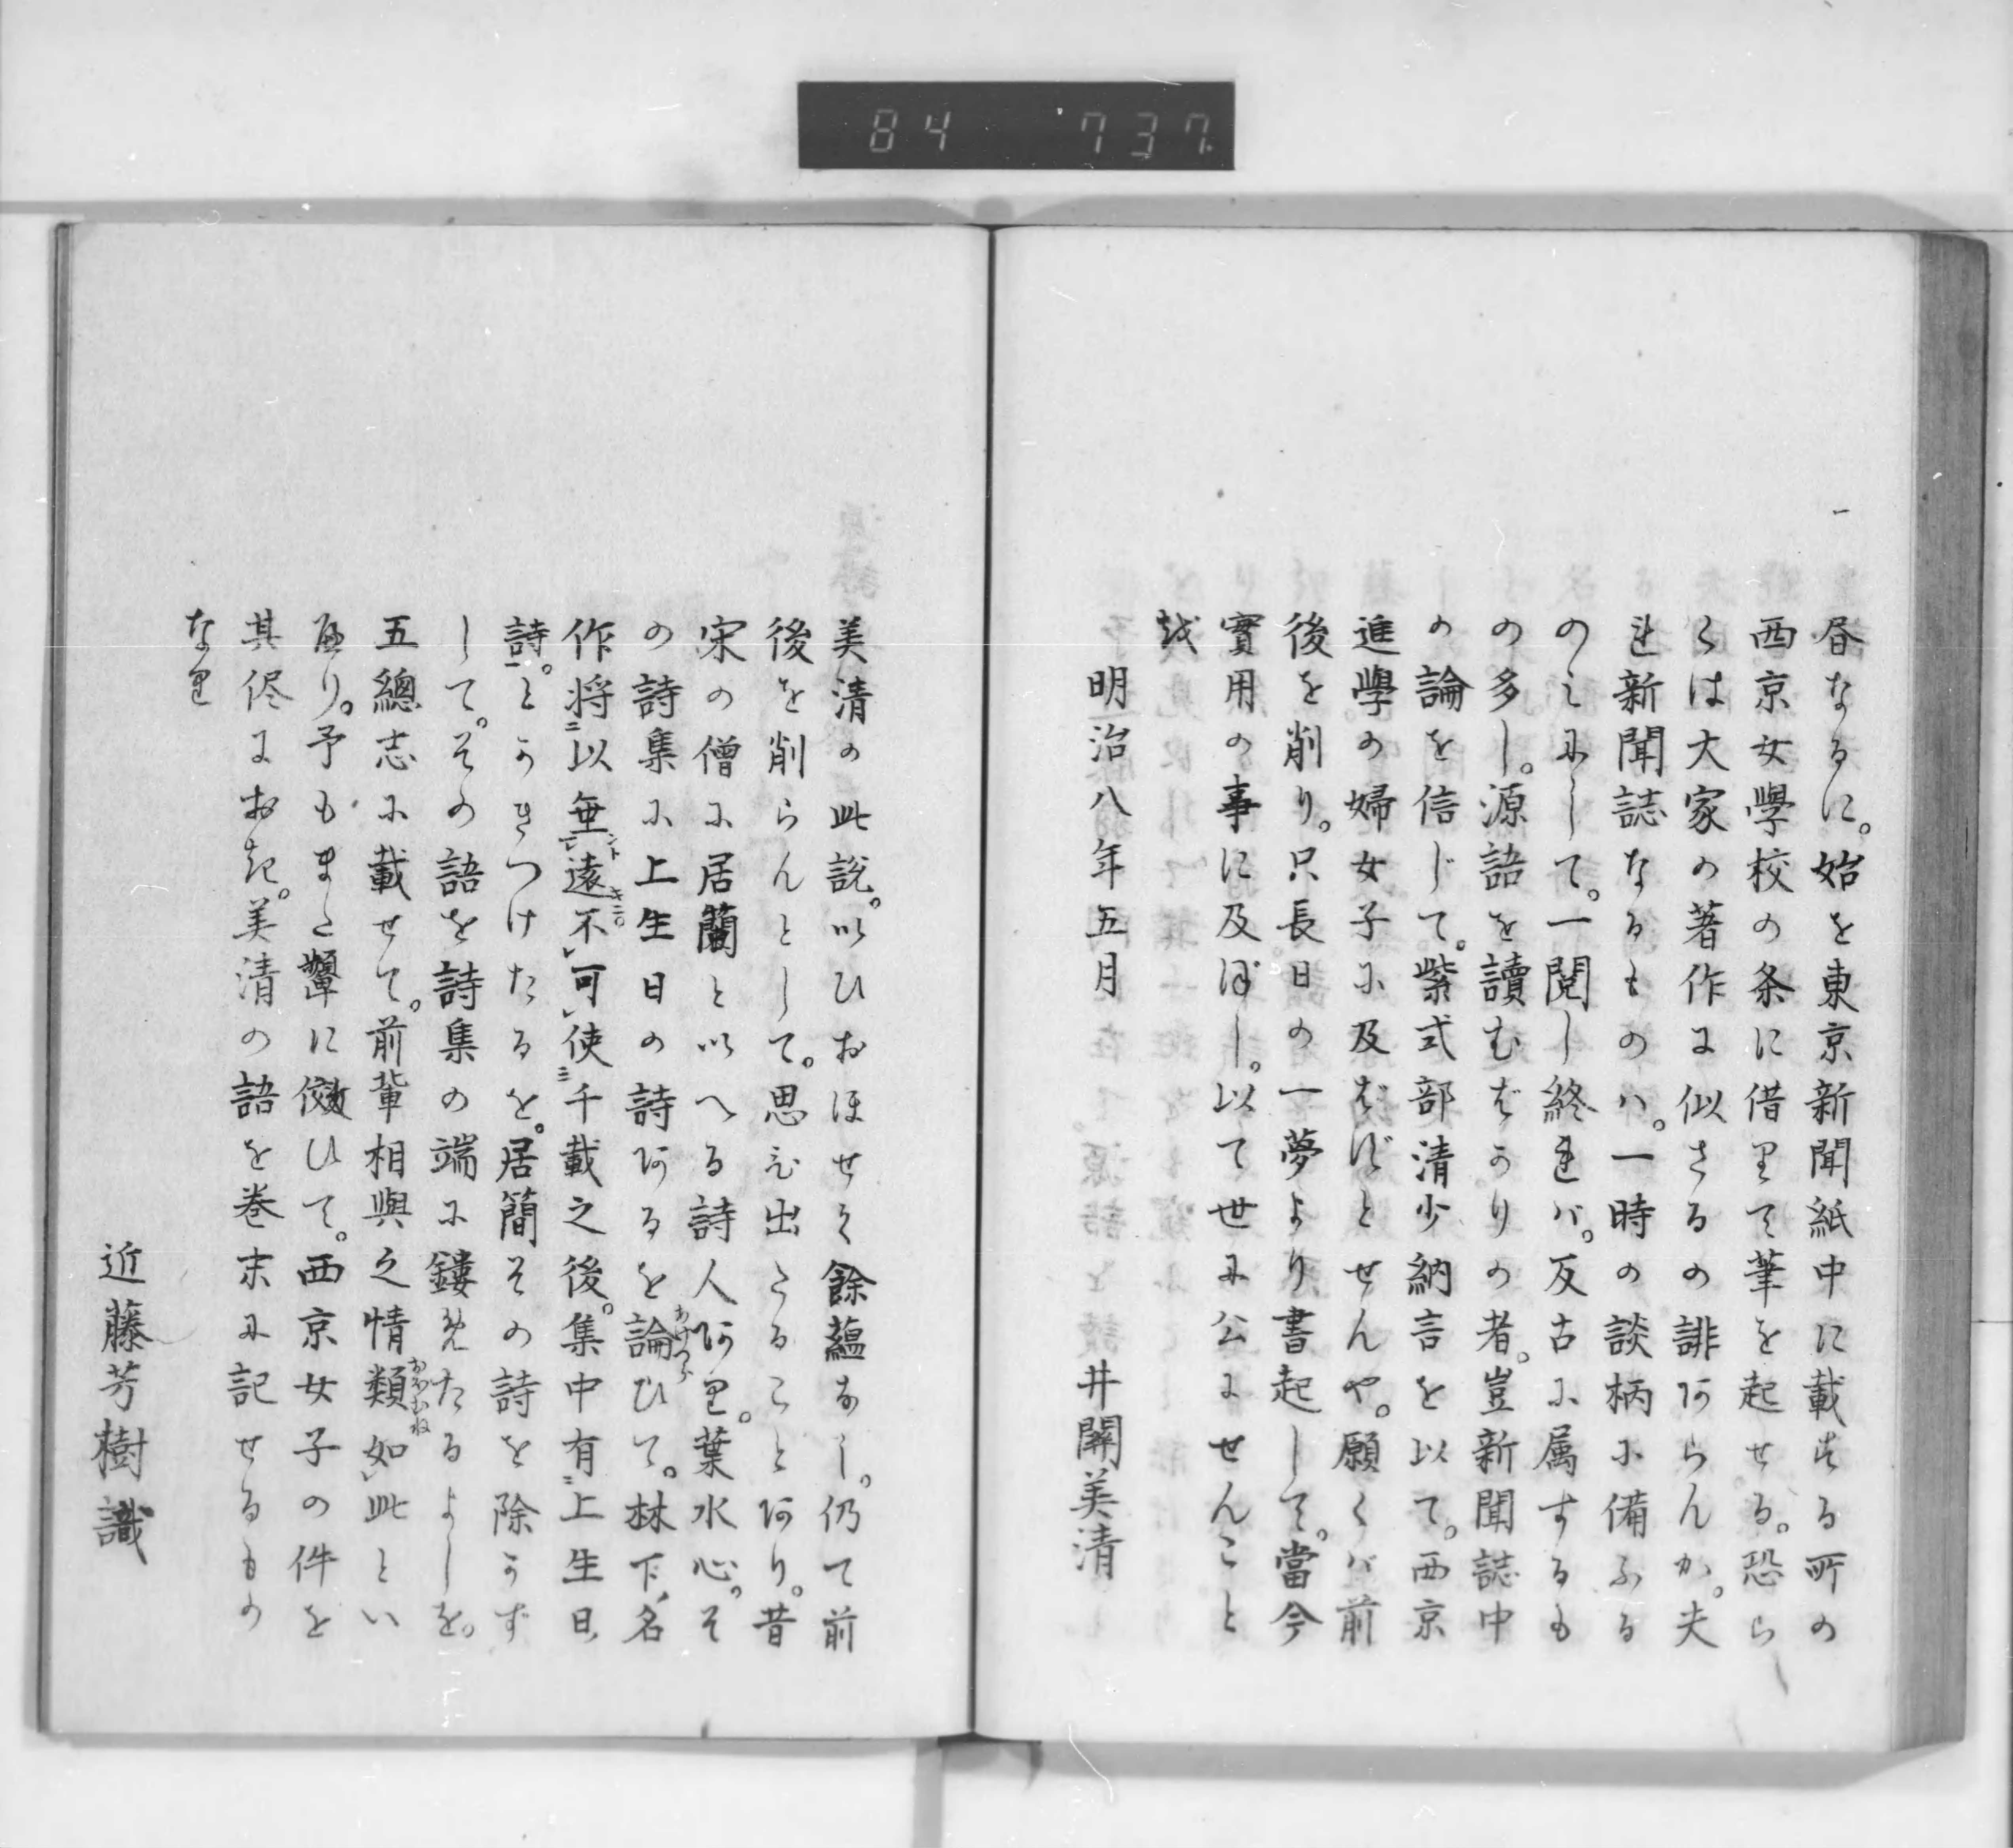 84 737
昼なるに。始を東京新聞紙中に載する所の
西京女學校の条に借りて筆を起せる。恐ら
くは大家の著作に似さるの誹あらんか。夫
れ新聞誌なるものハ。一時の談柄に備ふる
のミにして。一閲し終れバ。反古に属するも
の多し。源語を讀むばかりの者。豈新聞誌中
の論を信じて。紫式部清少納言を以て。西京
進學の婦女子に及ばずとせんや。願くバ前
後を削り。只長日の一夢より書起して。當今
實用の事に及ぼし。以て世に公にせんこと
を
明治八年五月
井關美清
美清の此說。いひおほせて餘蘊なし。仍て前
後を削らんとして。思ひ出たることあり。昔
宋の僧に居蘭といへる詩人あり。葉水心。そ
の詩集に上生日の詩あるを論ひて。林下名
作将以無遠不可使千載之後。集中有上生日
詩。とかきつけたるを。居簡その詩を除かず
して。その語を詩集の端に鏤めたるよしを。
五總志に載せて。前輩相與之情類如此とい
へり。予もまた顰に傚ひて。西京女子の件を
其侭におき。美清の語を巻末に記せるもの
なり
近藤芳樹識